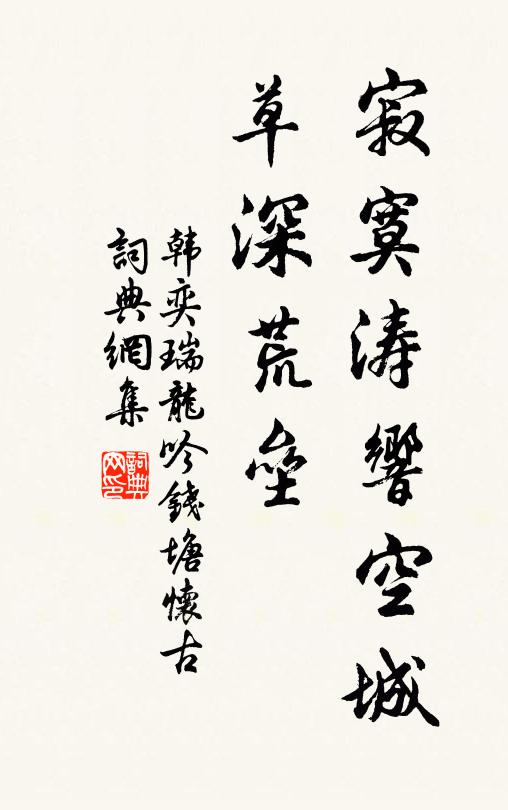 寂寞涛響空城
草深荒壘
韩奕瑞龍吟錢塘懷古
詞典網集
詞典网印